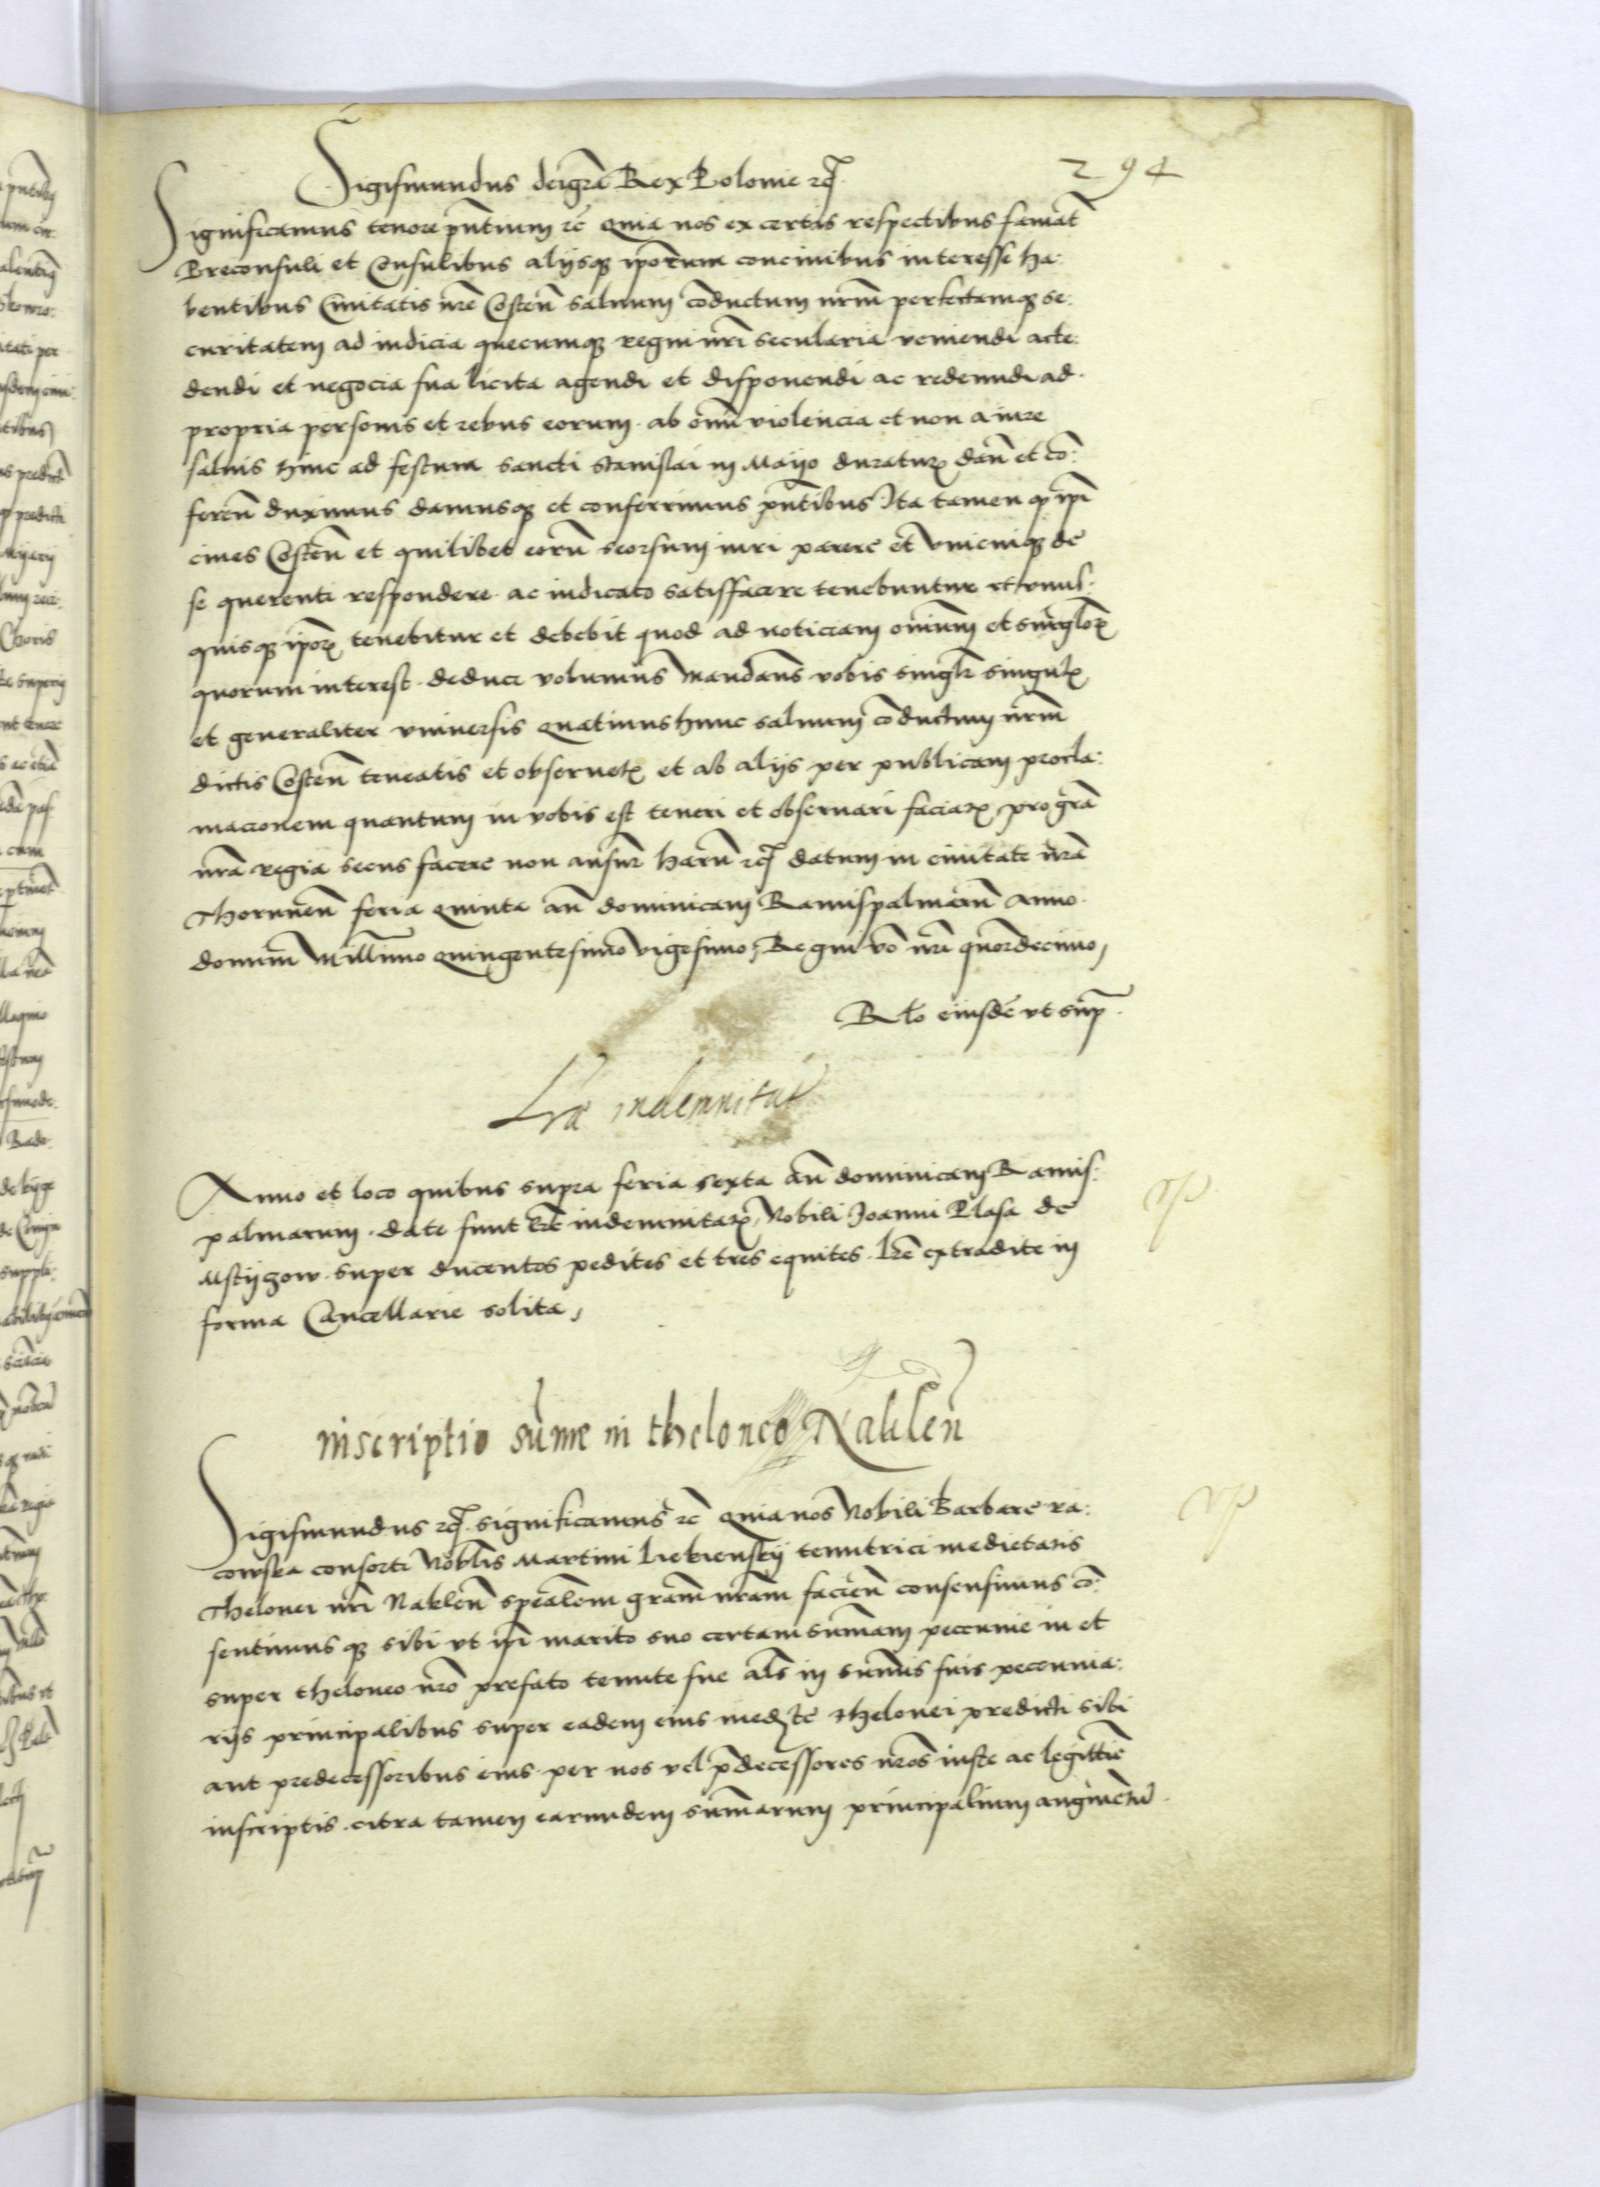 294
Sigismundus deigr̃a Rex Polonie rc̃
Significamus tenore pñtium rc̃ Quia nos ex certis respectibus famat̃
Preconsuli et Consulibus alijsq3 ip̃orum concivibus interesse ha:
bentibus Civitatis nr̃e Costeñ salvum cõductum nr̃m perfectamq3 se:
curitatem ad iudicia quecumq3 regni nr̃i secularia veniendi acce:
dendi et negocia sua licita agendi et disponendi ac redeundi ad
propria personis et rebus eorum ab om̃i violencia et non a iure
salvis hinc ad festum sancti Stanislai in Mayo duratur̃ dañ et cõ:
fereñ duximus damusq3 et conferrimus pñtibus Ita tamen q ip̃i
cives Costeñ et quilibet eorũ seorsum iuri parere et unicuiq3 de
se querenti respondere ac iudicato satisffacere tenebuntur et unus:
quisq3 ip̃or̃ tenebitur et debebit quod ad noticiam om̃ium et singlor̃
quorum interest deduci volumus Mandans vobis singlr̃ singulis
et generaliter universis Quatinus hunc salvum cõductum nr̃m
dictis Costeñ teneatis et observet̃ et ab alijs per publicam procla:
macionem quantum in vobis est teneri et observari faciat̃ pro gr̃a
nr̃a regia secus facere non ausur̃ harũ rc̃ datum in civitate nr̃a
Thoruneñ feria Quinta añ dominicam Ramispalmarũ Anno
domini Millimo Quingentesimo vigesimo, Regni vo nr̃i quordecimo,
Rlo eiusdẽ ut sup̃
Lr̃a indemnitat̃
Anno et loco quibus supra feria sexta añ dominicam Ramis:
palmarum date sunt lr̃e indemnitat̃, Nobili Joanni Plasa de
Mstijgow super ducentos pedites et tres equites lr̃e extradite in
forma Cancellarie solita,
rp
Inscriptio sum̃e in theloneo Nakleñ
Sigismundus rc̃ significamus rc̃ Quia nos Nobili Barbare ra:
cowska consorti Noblis Martini Liebienskij tenutrici medietatis
Thelonei nr̃i Nakleñ spẽalem gram̃ nr̃am facieñ consensimus cõ:
sentimus q3 sibi ut ip̃i marito suo certam sum̃am pecunie in et
super theloneo nr̃o prefato tenute sue als̃ in sum̃is suis pecunia:
rijs principalibus super eadem eius med̃te thelonei predicti sibi
aut predecessoribus eius per nos vel p̃decessores nr̃os iuste ac legittiẽ
inscriptis citra tamen earundem sum̃arum principalium augmentũ
rp